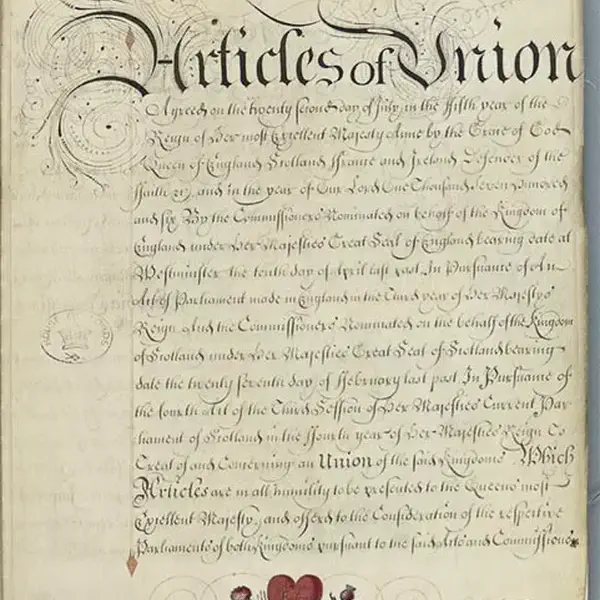 Articles of Union
Agreed on the twenty second day of July, in the ffifth year of the
Reign of Her most Excellent Majesty Anne by the Grace of God
Queen of England Scotland ffrance and Ireland Defender of the
ffaith &c, and in the year of Our Lord One Thousand Seven Hundred
and six By the Commissioners Nominated on behalf of the Kingdom of
England under Her Majesties Great Seal of England bearing date at
Westminster the tenth day of April last past In Pursuance of An
Act of Parliament made in England in the third year of Her Majestys
Reign And the Commissioners Nominated on the behalf of the Kingdom
of Scotland under Her Majesties Great Seal of Scotland bearing
date the twenty seventh day of ffebruary last past In Pursuance of
the fourth Act of the Third Session of Her Majesties Current Par-
liament of Scotland in the ffourth year of Her Majesties Reign To
Treat of and Concerning an Union of the said Kingdoms Which
Articles are in all humility to be presented to the Queens most
Excellent Majesty, and offer'd to the Consideration of the respective
Parliaments of both Kingdoms pursuant to the said Acts and Commissions